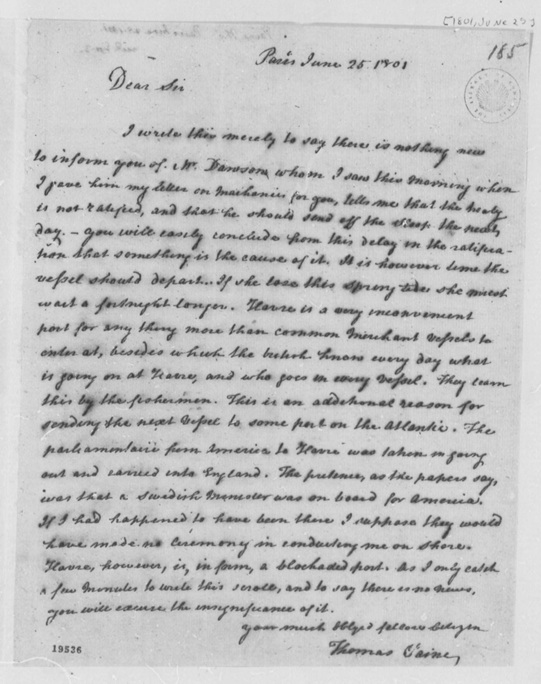 [1801, June 25]
185
Paris June 25 1801
Dear Sir
I write this merely to say there is nothing new
to inform you of. Mr. Dawson, whom I saw this morning when
I gave him my letter on Mechanics for you, tells me that the treaty
is not ratified, and that he should send off the Sloop the next
day. – you will easily conclude from this delay in the ratifica-
tion that something is the cause of it. It is however time the
vessel should depart. If she lose this spring tide she must
wait a fortnight longer. Havre is a very inconvenient
port for any thing more than common Merchant vessels to
enter at, besides which the british know every day what
is going on at Havre, and who goes in every vessel. They learn
this by the fishermen. This is an additional reason for
sending the next vessel to some port on the Atlantic. The
parliamentaire from America to Havre was taken in going
out and carried into England. The pretence, as the papers say,
was that a Swedish Minister was on board for America.
If I had happened to have been there I suppose they would
have made no ceremony in conducting me on shore.
Havre, however, is, in form, a blockaded port. As I only catch
a few Minutes to write this scroll, and to say there is no news,
you will excuse the insignificance of it.
your much Obliged fellow citizen
Thomas Paine
19536